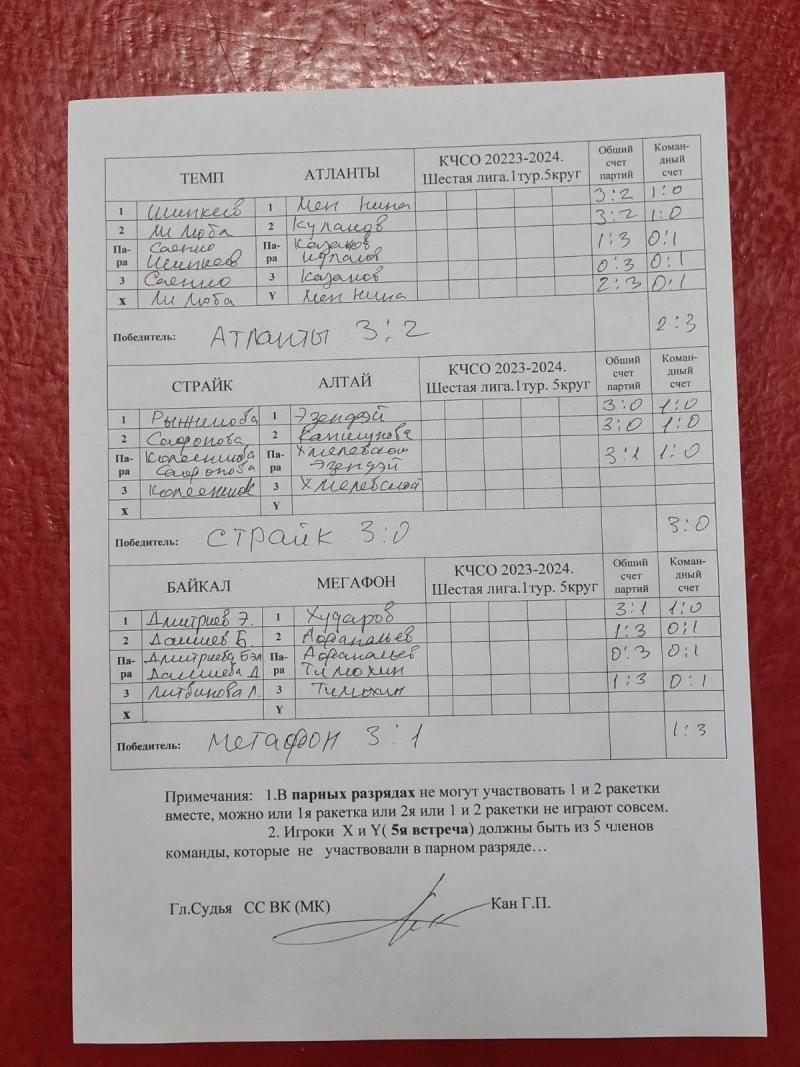 ТЕМП АТЛАНТЫ КЧСО 20223-2024. Шестая лига.1тур.5круг Общий счет партий Коман-дный счет
1 Шинкеев 1 Мен Нина 3:2 1:0
2 Ли Люба 2 3:2 1:0
Па-ра Саенко Па-ра Казаков 1:3 0:1
Шинкеев
3 Саенко 3 Казаков 0:3 0:1
X Ли Люба Y Мен Нина 2:3 0:1
Победитель: Атланты 3:2 2:3
СТРАЙК АЛТАЙ КЧСО 2023-2024. Шестая лига.1тур. 5круг Общий счет партий Коман-дный счет
1 1 Эзендэй 3:0 1:0
2 Сафронова 2 3:0 1:0
Па-ра Па-ра Хмелевской 3:1 1:0
Сафронова Эзендэй
3 3 Хмелевской
X Y
Победитель: Страйк 3:0 3:0
БАЙКАЛ МЕГАФОН КЧСО 2023-2024. Шестая лига.1тур. 5круг Общий счет партий Коман-дный счет
1 Дмитриев Э. 1 Хударов 3:1 1:0
2 Дашиев Б. 2 Афанасьев 1:3 0:1
Па-ра Дмитриева Па-ра Афанасьев 0:3 0:1
Дашиева Д Тимохин
3 Литвинова Л. 3 Тимохин 1:3 0:1
X Y
Победитель: Мегафон 3:1 1:3
Примечания: 1.В парных разрядах не могут участвовать 1 и 2 ракетки
вместе, можно или 1я ракетка или 2я или 1 и 2 ракетки не играют совсем.
2. Игроки X и Y( 5я встреча) должны быть из 5 членов
команды, которые не участвовали в парном разряде…
Гл.Судья СС ВК (МК) Кан Г.П.